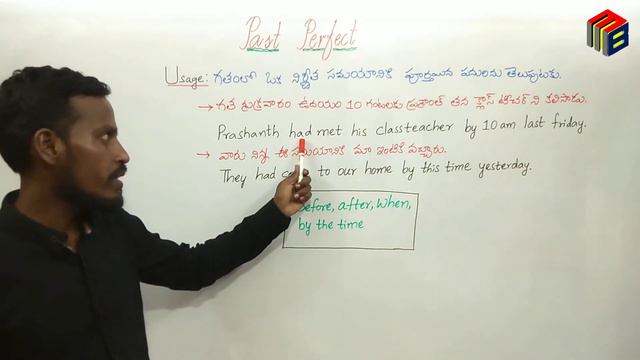 Past Perfect
Usage: గతంలో ఒక నిర్ణీత సమయానికి పూర్తయిన పనులను తెలుపుటకు.
→ గత శుక్రవారం ఉదయం 10 గంటలకు ప్రశాంత్ తన క్లాస్ టీచర్ ని కలిసాడు.
Prashanth had met his classteacher by 10 am last friday.
→ వారు నిన్న ఈ సమయానికి మా ఇంటికి వచ్చారు.
They had to our home by this time yesterday.
before, after, when,
by the time